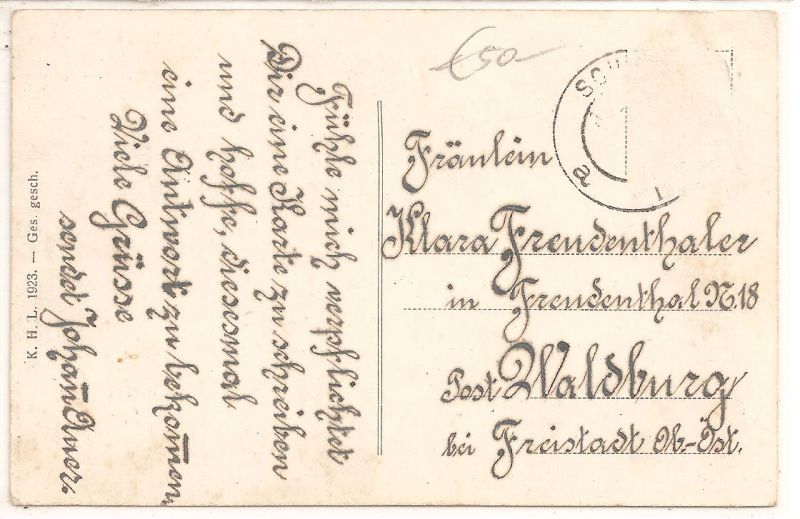 Fühle mich verpflichtet
Dir eine Karte zu schreiben
und hoffe, diesesmal
eine Antwort zu bekom̄en.
Viele Grüsse
sendet Johan̄
€50-
Fräulein
Klara Freudenthaler
in Freudenthal N. 18
Post Waldburg
bei Freistadt Ob.-Öst.
a
K. H. L. 1923. — Ges. gesch.